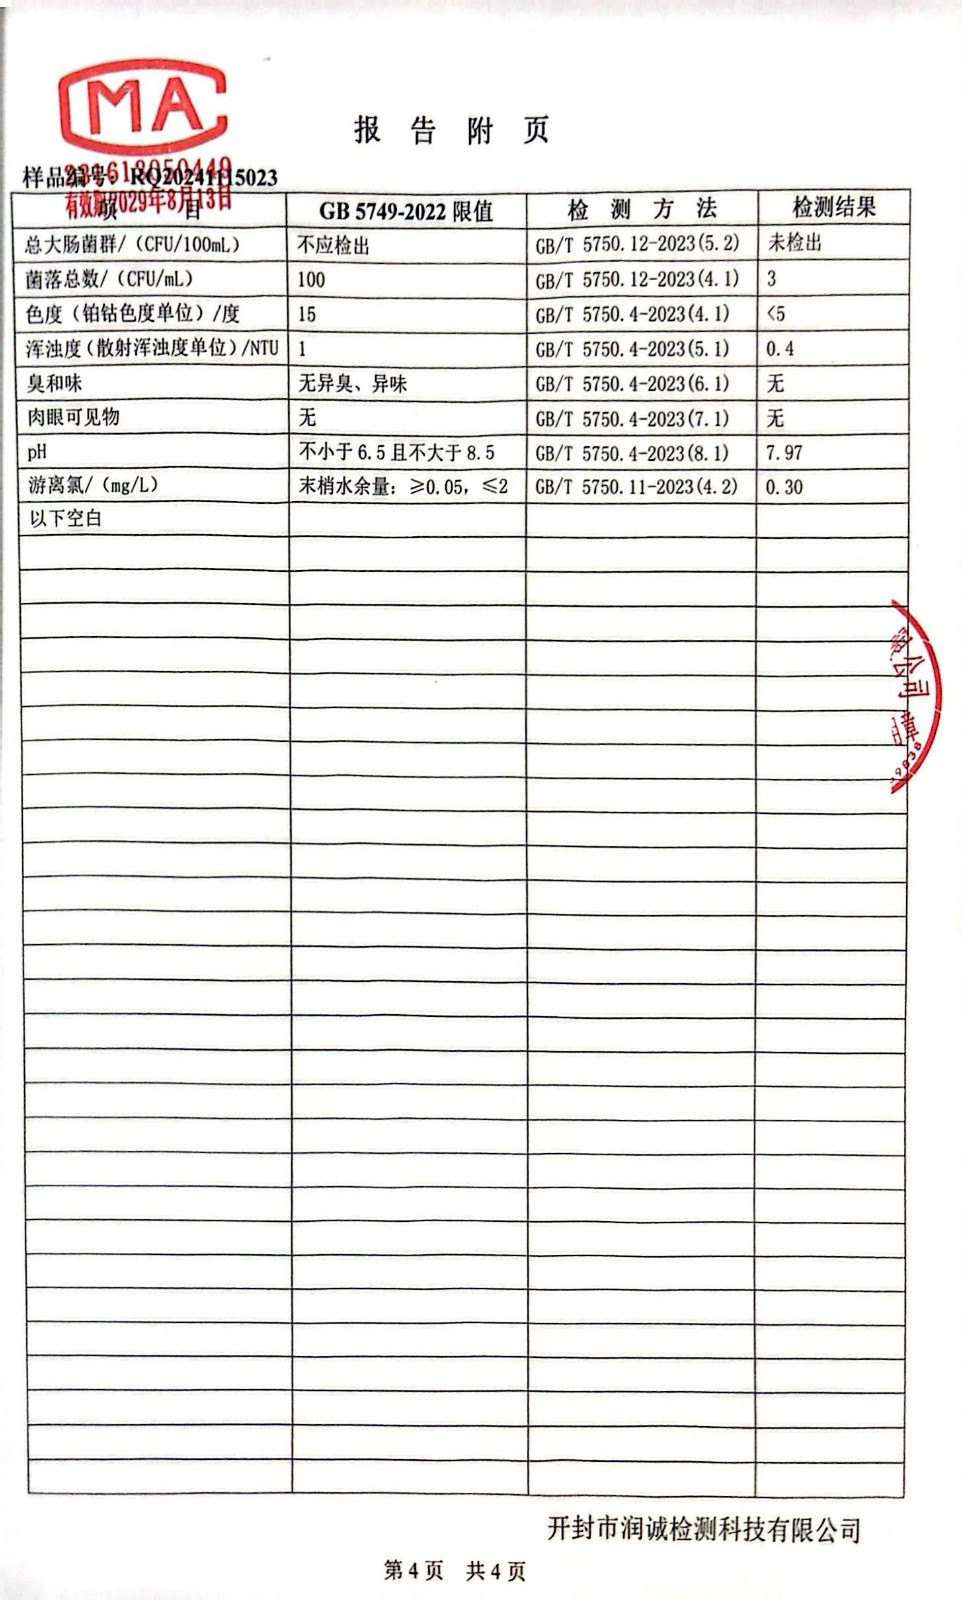 MA
报 告 附 页
231613050449
样品编号：RQ20241115023
有效期2029年8月13日
项 目 GB 5749-2022 限值 检 测 方 法 检测结果
总大肠菌群/（CFU/100mL） 不应检出 GB/T 5750.12-2023(5.2) 未检出
菌落总数/（CFU/mL） 100 GB/T 5750.12-2023(4.1) 3
色度（铂钴色度单位）/度 15 GB/T 5750.4-2023(4.1) <5
浑浊度（散射浑浊度单位）/NTU 1 GB/T 5750.4-2023(5.1) 0.4
臭和味 无异臭、异味 GB/T 5750.4-2023(6.1) 无
肉眼可见物 无 GB/T 5750.4-2023(7.1) 无
pH 不小于 6.5 且不大于 8.5 GB/T 5750.4-2023(8.1) 7.97
游离氯/（mg/L） 末梢水余量：≥0.05，≤2 GB/T 5750.11-2023(4.2) 0.30
以下空白
公司
章
开封市润诚检测科技有限公司
第 4 页 共 4 页